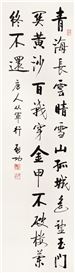 青海長雲暗雪山孤城遥望玉門
關黄沙百戰穿金甲不破樓蘭
終不還 唐人從軍行 啟功